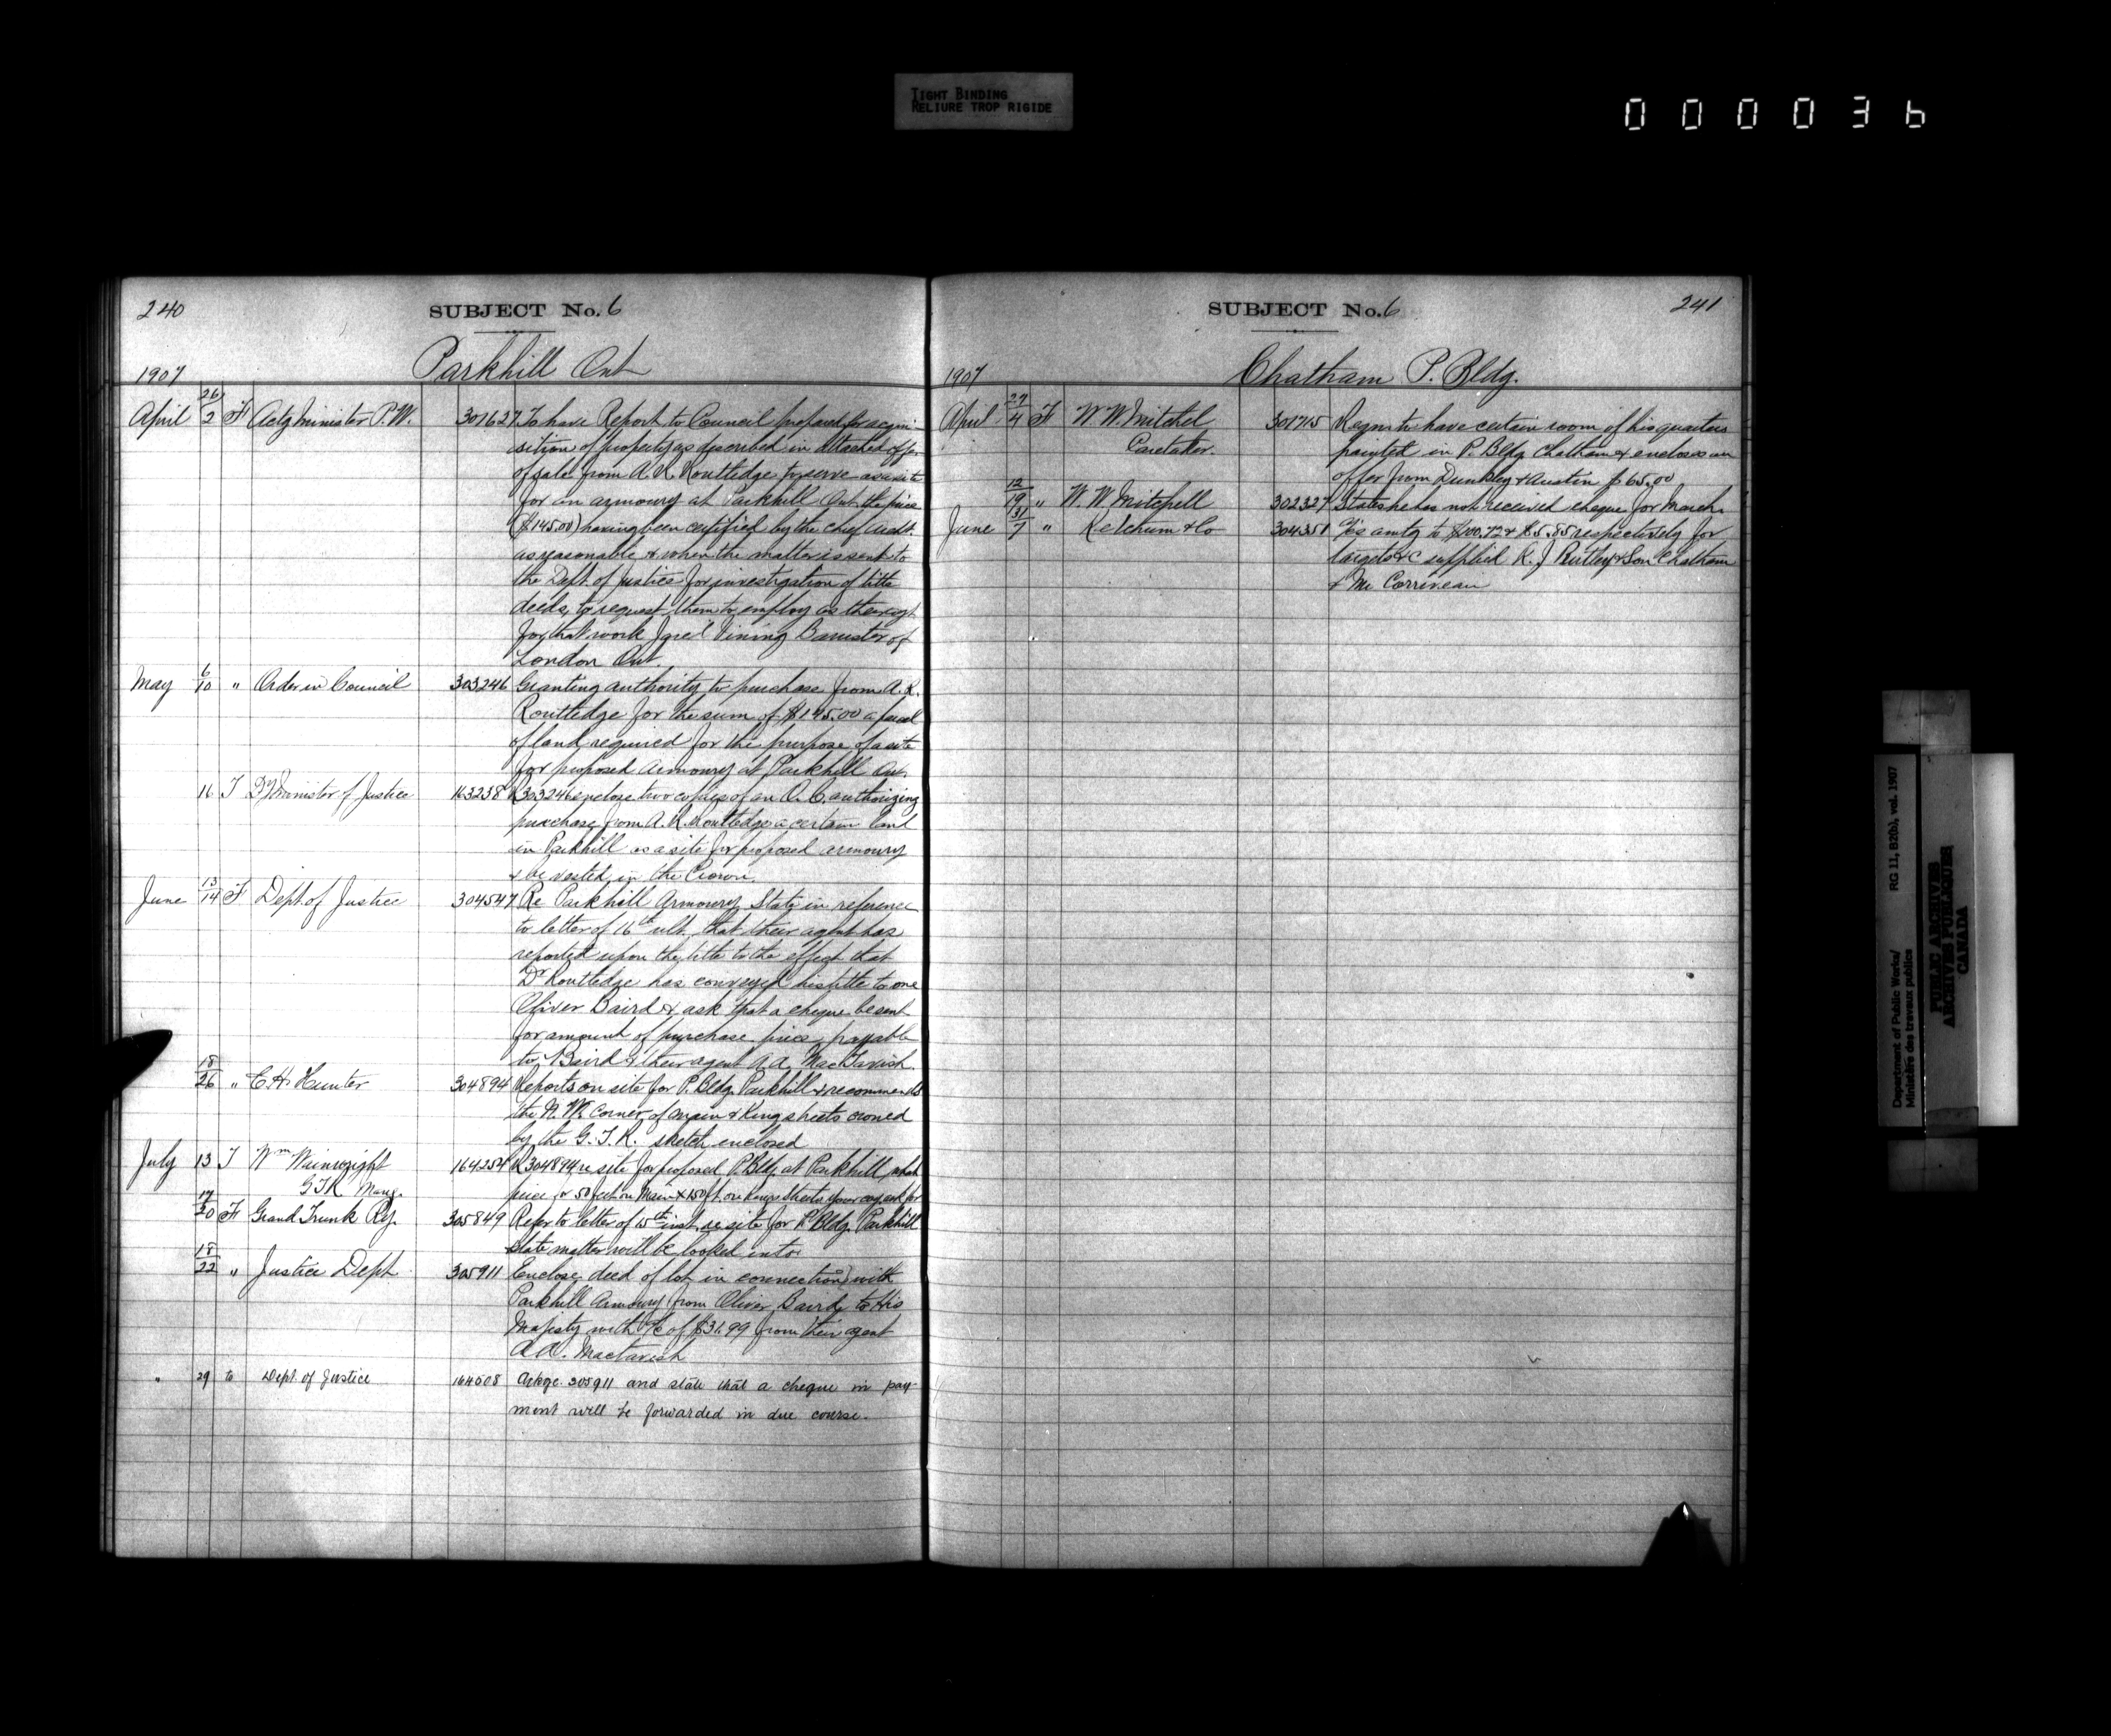 TIGHT BINDING
RELIURE TROP RIGIDE
000036
240
SUBJECT No. 6
Parkhill Ont
1907
April 26/2 F Actg Minister P.W. 301627 To have Report to Council prepared for acqui-
sition of property as described in attached offer
of sale from A. R. Routledge to serve as a site
for an armoury at Parkhill Ont. the price
($145.00) having been certified by the chief archt.
as reasonable & when the matter is sent to
the Dept. of Justice for investigation of title
deeds, to request them to employ as their agt.
for that work Jared Vining Barrister of
London Ont.
May 6/10 " Order in Council 303246 Granting authority to purchase from A. R.
Routledge for the sum of $145.00 a parcel
of land required for the purpose of a site
for proposed Armoury at Parkhill Ont.
16 T Dy Minister of Justice 163238 R 303246 enclose two copies of an O. C. authorizing
purchase from A. R. Routledge a certain land
in Parkhill as a site for proposed armoury
& be vested in the Crown.
June 13/14 F Dept of Justice 304547 Re Parkhill Armoury State in reference
to letter of 16th ult. that their agent has
reported upon the title to the effect that
Dr Routledge has conveyed his title to one
Oliver Baird & ask that a cheque be sent
for amount of purchase price payable
to Baird & their agent A.A. MacTavish.
18/26 " C. H. Hunter 304894 Reports on site for P. Bldg. Parkhill & recommends
the N. W. Corner of Main & King streets owned
by the G. T. R. sketch enclosed
July 13 T Wm Wainwright 164254 R 304894 re site for proposed P. Bldg. at Parkhill, what
GTR Mang. price for 50 feet on Main & 150 ft. on Kings Streets your coy. ask for
17/20 F Grand Trunk Ry. 305849 Refer to letter of 15th inst. re site for P. Bldg. Parkhill
state matter will be looked into
18/22 " Justice Dept. 305911 Enclose deed of lot in connection with
Parkhill Armoury from Oliver Baird to His
Majesty with a/c of $31.99 from their agent
A.A. Mactavish
" 29 to Dept. of Justice 164508 Ackge. 305911 and state that a cheque in pay-
ment will be forwarded in due course.
SUBJECT No. 6
241
Chatham P. Bldg.
1907
April 27/4 F W. W. Mitchel 301715 Reqsn to have certain room of his quarters
Caretaker. painted in P. Bldg Chatham & encloses an
offer from Dunkley & Austin $65.00
12/19 " W. W. Mitchell 302327 States he has not received cheque for March.
June 31/7 " Ketchum & Co 304351 a/cs amtg to $100.72 & $5.85 respectively for
targets &c supplied & Son Chatham
& Mr Corriveau
Department of Public Works/
Ministère des travaux publics
RG 11, B2(b), vol. 1907
PUBLIC ARCHIVES
ARCHIVES PUBLIQUES
CANADA